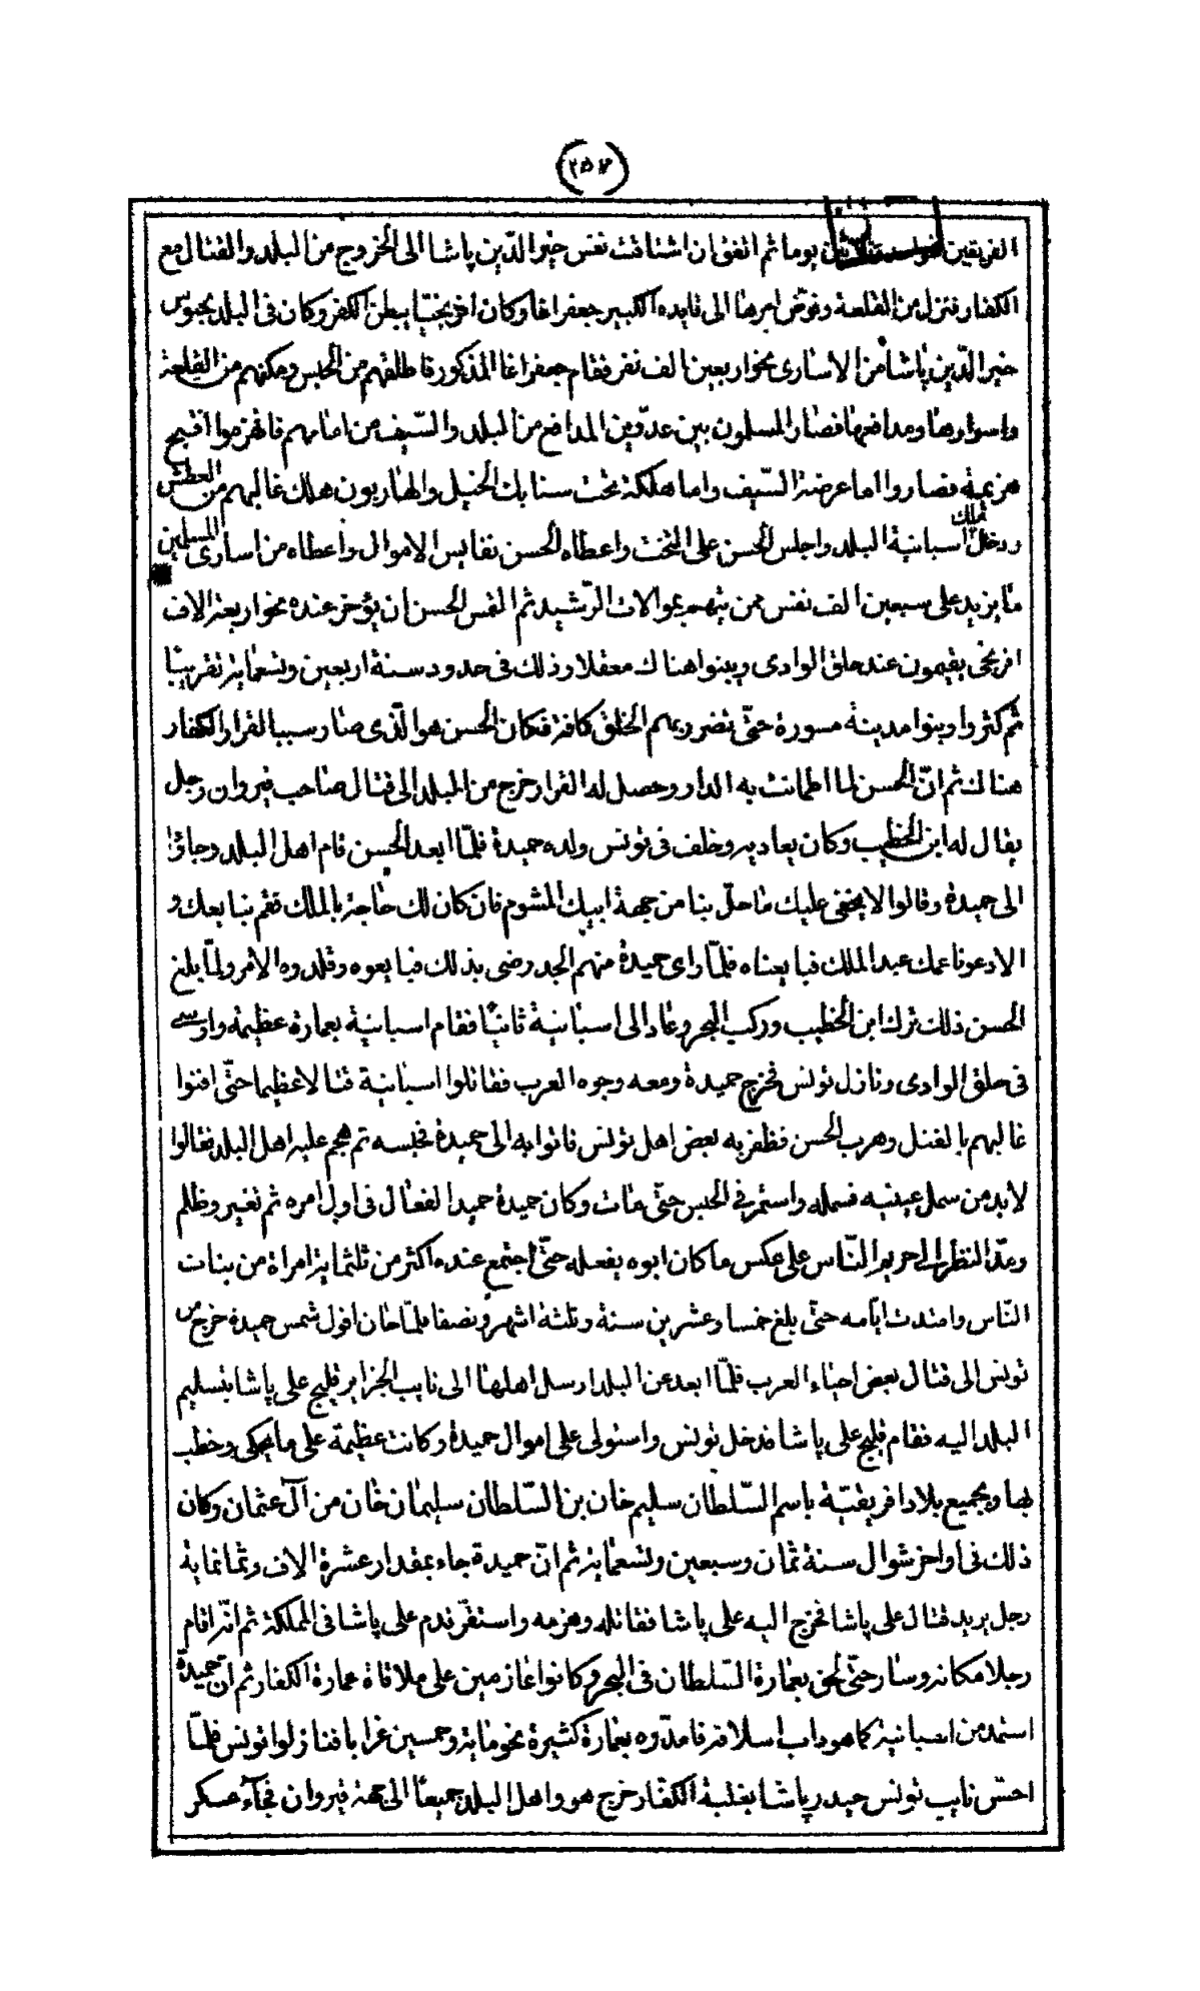 (٢٥٧)
الفريقين يوما ثم اتفق ان اشتاقت نفس خير الدّين پاشا الى الخروج من البلد والقتال مع
الكفار فنزل من القلعة وفوّض امرها الى قايده الكبير جعفر اغا وكان افرنجيّا يبطن الكفر وكان فى البلد بحبوس
خير الدّين پاشا من الاسارى نحو اربعين الف نفر فقام جعفر اغا المذكور فاطلقهم من الحبس ومكنهم من القلعة
واسوارها ومدافعها فصار المسلمون بين عدوّين المدافع من البلد والسّيف من امامهم فانهزموا اقبح
هزيمة فصاروا اما عرضة السّيف واما هلكة تحت سنابك الخيل والهاربون هلك غالبهم من العطش
ودخل ملك اسبانية البلد واجلس الحسن على التخت واعطاه الحسن نفايس الاموال واعطاه من اسارى المسلمين
ما يزيد على سبعين الف نفس ممن يتهم بموالات الرّشيد ثم التمس الحسن ان يؤخر عنده نحو اربعة الاف
افرنجى يقيمون عند حلق الوادى ويبنوا هناك معقلا وذلك فى حدود سنة اربعين وتسعماية تقريبًا
ثم كثروا وبنوا مدينة مسورة حتّى تضرر بهم الخلق كافة فكان الحسن هو الّذى صار سببا لقرار الكفار
هناك ثم انّ الحسن لما اطمانت به الدار وحصل له القرار خرج من البلد الى قتال صاحب قيروان رجل
يقال له ابن الخطيب وكان يعاديه وخلف فى تونس ولده حميدة فلمّا ابعد الحسن قام اهل البلد وجاؤا
الى حميدة وقالوا لا يخفى عليك ما حلّ بنا من جهة ابيك المشوم فان كان لك حاجة بالملك فقم نبايعك و
الا دعونا عمك عبد الملك فبايعناه فلمّا راى حميدة منهم الجد رضى بذلك فبايعوه وقلدوه الامر ولمّا بلغ
الحسن ذلك ترك ابن الخطيب وركب البحر وعاد الى اسبانية ثانيًا فقام اسبانية بعمارة عظيمة وارسى
فى حلق الوادى ونازل تونس فخرج حميدة ومعه وجوه العرب فقاتلوا اسبانية قتالا عظيما حتّى افنوا
غالبهم بالقتل وهرب الحسن فظفر به بعض اهل تونس فاتوا به الى حميدة فحبسه ثم هجم عليه اهل البلد فقالوا
لابد من سمل عينيه فسمله واستمر فى الحبس حتّى مات وكان حميدة حميد الفعال فى اول امره ثم تغير وظلم
ومدّ النظر الى حريم النّاس على عكس ما كان ابوه يفعله حتّى اجتمع عنده اكثر من ثلثماية امراة من بنات
النّاس وامتدت ايّامه حتى بلغ خمسا وعشرين سنة وثلثة اشهر ونصفا فلمّا حان افول شمس حميدة خرج من
تونس الى قتال بعض احياء العرب فلمّا ابعد عن البلد ارسل اهلها الى نايب الجزاير قليج على پاشا بتسليم
البلد اليه فقام قليج على پاشا فدخل تونس واستولى على اموال حميدة وكانت عظيمة على ما يحكى وخطب
بها وبجميع بلاد افريقيّة باسم السّلطان سليم خان بن السّلطان سليمان خان من آل عثمان وكان
ذلك فى اواخر شوال سنة ثمان وسبعين وتسعماية ثم انّ حميدة جاء بمقدار عشرة الاف وثمانماية
رجل يريد قتال على پاشا فخرج اليه على پاشا فقاتله وهزمه واستقرّ قدم على پاشا فى المملكة ثم انّه اقام
رجلا مكانه وسار حتّى لحق بعمارة السّلطان فى البحر وكانوا عازمين على ملاقاة عمارة الكفار ثم انّ حميدة
استمد من اصبانية كما هو داب اسلافه فامدّوه بعمارة كثيرة نحو ماية وخمسين غرابا فنازلوا تونس فلمّا
احسّ نايب تونس حيدر پاشا بغلبة الكفّار خرج هو واهل البلد جميعًا الى جهة قيروان فجآء عسكر